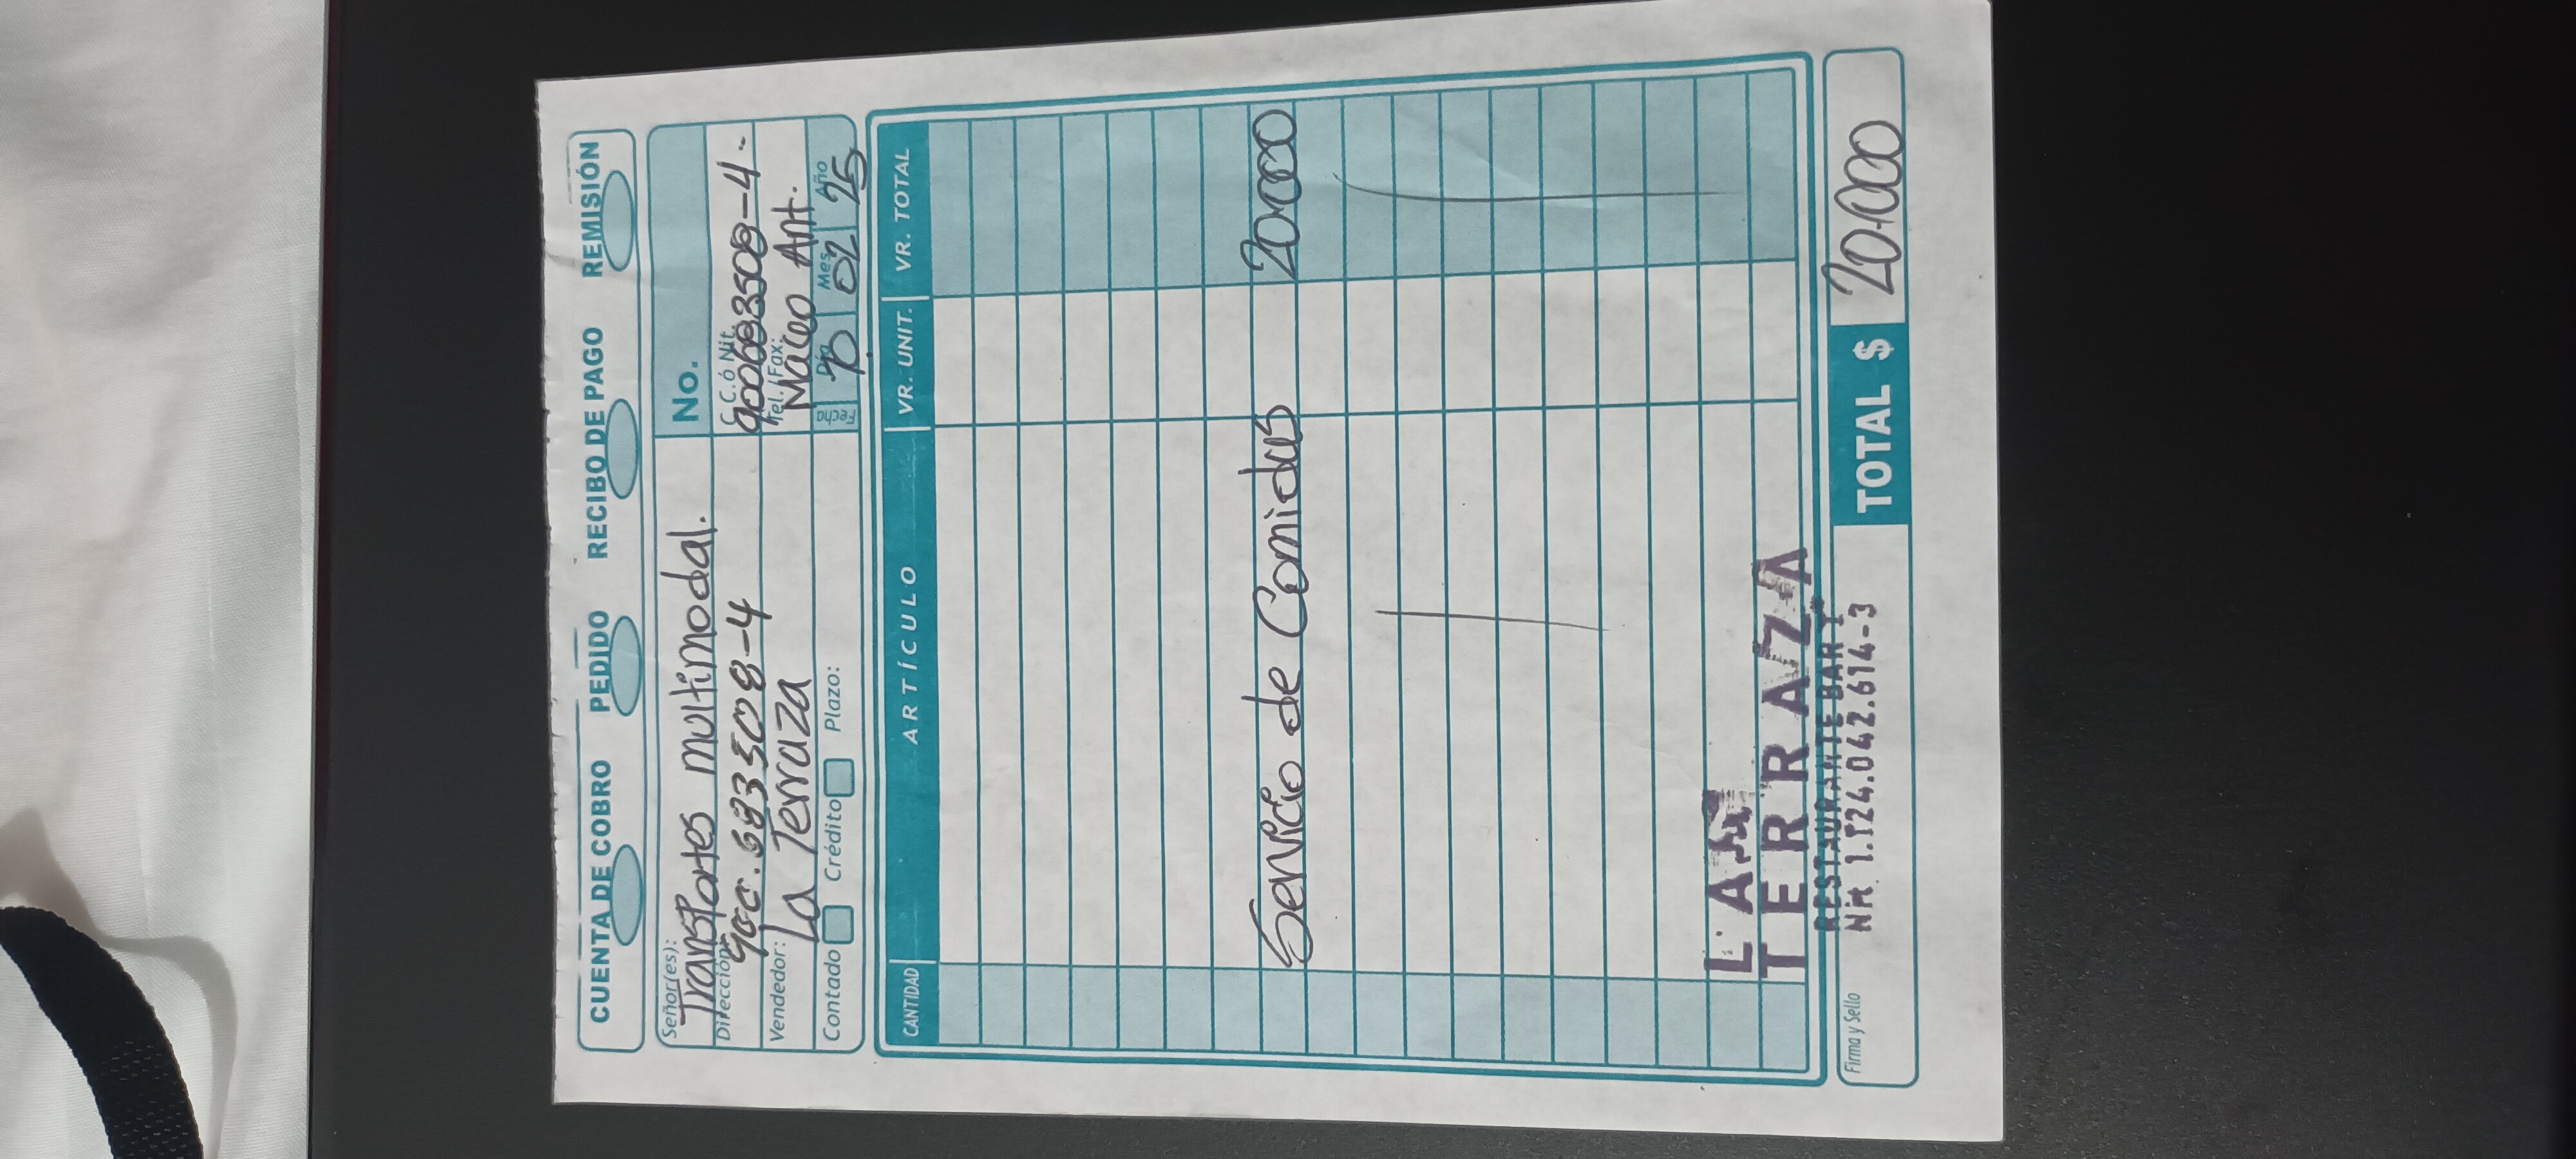 CUENTA DE COBRO PEDIDO RECIBO DE PAGO REMISIÓN
Señor(es): Transportes multimodal.
No.
Dirección: 900.683508-4
C.C. ó Nit. 900683508-4.
Vendedor: La Terraza
Tel. / Fax: Maceo Ant.
Contado Crédito Plazo:
Fecha Día 10 Mes 02 Año 25
CANTIDAD ARTÍCULO VR. UNIT. VR. TOTAL
Servicio de Comidas 20000
LA
TERRAZA
RESTAURANTE BAR
Nit 1.124.042.614-3
Firma y Sello
TOTAL $ 20.000